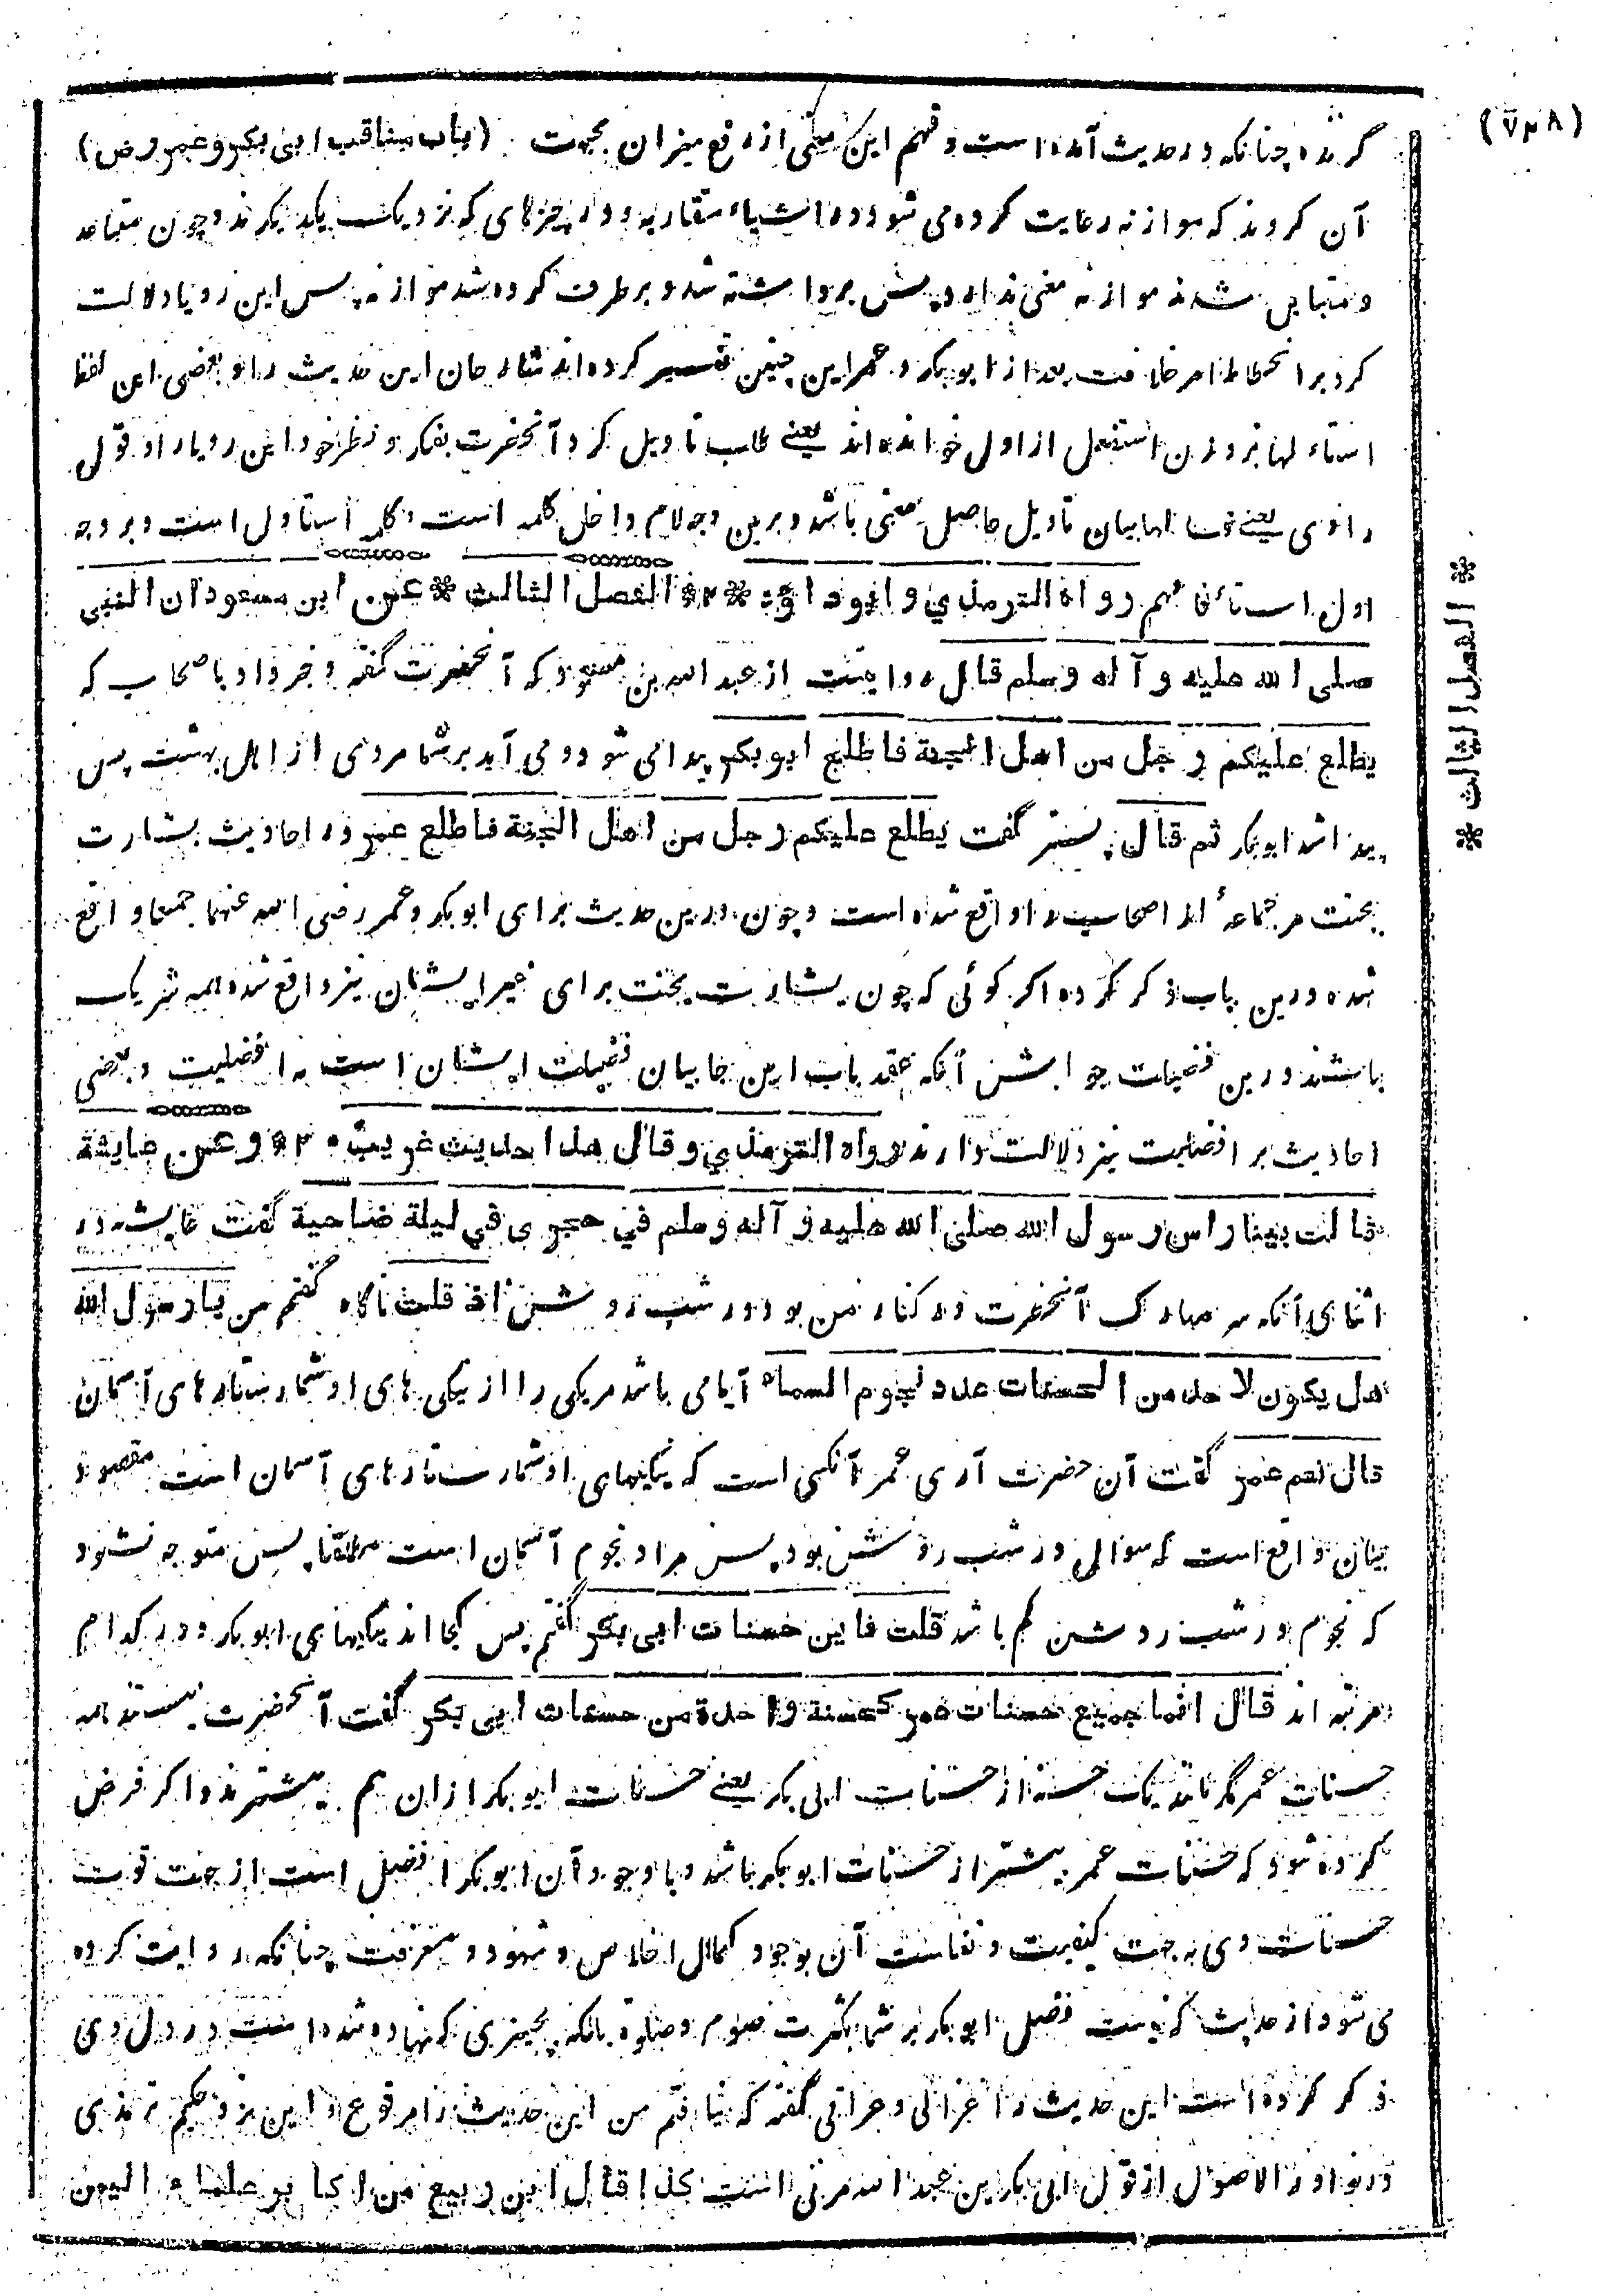 (۷۳۸)
(باب مناقب ابی بکر و عمر رض)
گردند چنانکه در حدیث آمده است و فهم این معنی از رفع میزان بجهت
آن کردند که موازنه رعایت کرده می شود در اشیاء متقاربه و در چیزهای که نزدیک یکدیگرند و چون متباعد
و متباین شدند موازنه معنی ندارد پس برداشته شد و برطرف کرده شد موازنه پس این رویا دلالت
کرد بر انحطاط امر خلافت بعد از ابوبکر و عمر این چنین تفسیر کرده اند شارحان این حدیث را و بعضی این لفظ
استاء لها بر وزن استفعل از اول خوانده اند یعنے طلب تاویل کرد آنحضرت بفکر و نظر خود این رویا را و قول
راوی یعنے فساء لها بیان تاویل حاصل معنی باشد و برین وجه لام داخل کلمه است و کلمه استاول است و بر وجه
اول استاء فافهم رواه الترمذي و ابوداؤد * ۳ * الفصل الثالث * عن ابن مسعود ان النبی
صلی الله علیه و آله وسلم قال روایتست از عبد الله بن مسعود که آنحضرت گفته و خبر داد باصحاب که
یطلع علیکم رجل من اهل الجنة فاطلع ابو بکر پیدا می شود و می آید بر شما مردی از اهل بهشت پس
پیدا شد ابوبکر ثم قال پستر گفت یطلع علیکم رجل من اهل الجنة فاطلع عمر در احادیث بشارت
بجنت مر جماعهٔ از اصحاب را واقع شده است و چون درین حدیث برای ابوبکر و عمر رضی الله عنهما جمعا واقع
شده درین باب ذکر کرده اگر گوئی که چون بشارت بجنت برای غیر ایشان نیز واقع شده همه شریک
باشند درین فضیلت جوابش آنکه عقد باب این جا بیان فضیلت ایشان است نه افضلیت و بعضی
احادیث بر افضلیت نیز دلالت دارند رواه الترمذي و قال هذا حدیث غریب * ۲ * و عن عایشة
قالت بینا راس رسول الله صلی الله علیه و آله وسلم في حجری في لیلة ضاحیة گفت عایشه در
اثنای آنکه سر مبارک آنحضرت در کنار من بود در شب روشن اذ قلت ناگاه گفتم من یا رسول الله
هل یکون لاحد من الحسنات عدد نجوم السماء آیا می باشد مر یکی را از نیکی های او شمار ستارهای آسمان
قال نعم عمر گفت آن حضرت آری عمر آنکس است که نیکیهای او شمار ستارهای آسمان است مقصود
بیان واقع است که سوال در شب روشن بود پس مراد نجوم آسمان است مطلقا پس متوجه نشود
که نجوم در شب روشن کم باشد قلت فاین حسنات ابی بکر گفتم پس کجا اند نیکیهای ابوبکر و در کدام
مرتبه اند قال انما جمیع حسنات عمر کحسنة واحدة من حسنات ابی بکر گفت آنحضرت نیستند همه
حسنات عمر مگر مانند یک حسنه از حسنات ابی بکر یعنے حسنات ابوبکر ازان هم بیشترند و اگر فرض
کرده شود که حسنات عمر بیشتر از حسنات ابوبکر باشد و باوجود آن ابوبکر افضل است از جهت قوت
حسنات وی به جهت کیفیت و نفاست آن بوجود کمال اخلاص و شهود و معرفت چنانکه روایت کرده
می شود از حدیث که نیست فضل ابوبکر بر شما بکثرت صوم و صلوة بلکه بچیزی که نهاده شده است در دل وی
ذکر کرده است این حدیث را غزالی و عراقی گفته که نیافتم من این حدیث را مرفوع و این نزد حکیم ترمذی
در نوادر الاصول از قول ابی بکر بن عبد الله مزنی است کذا قال ابن ربیع من اکابر علماء الیمن
* الفصل الثالث *